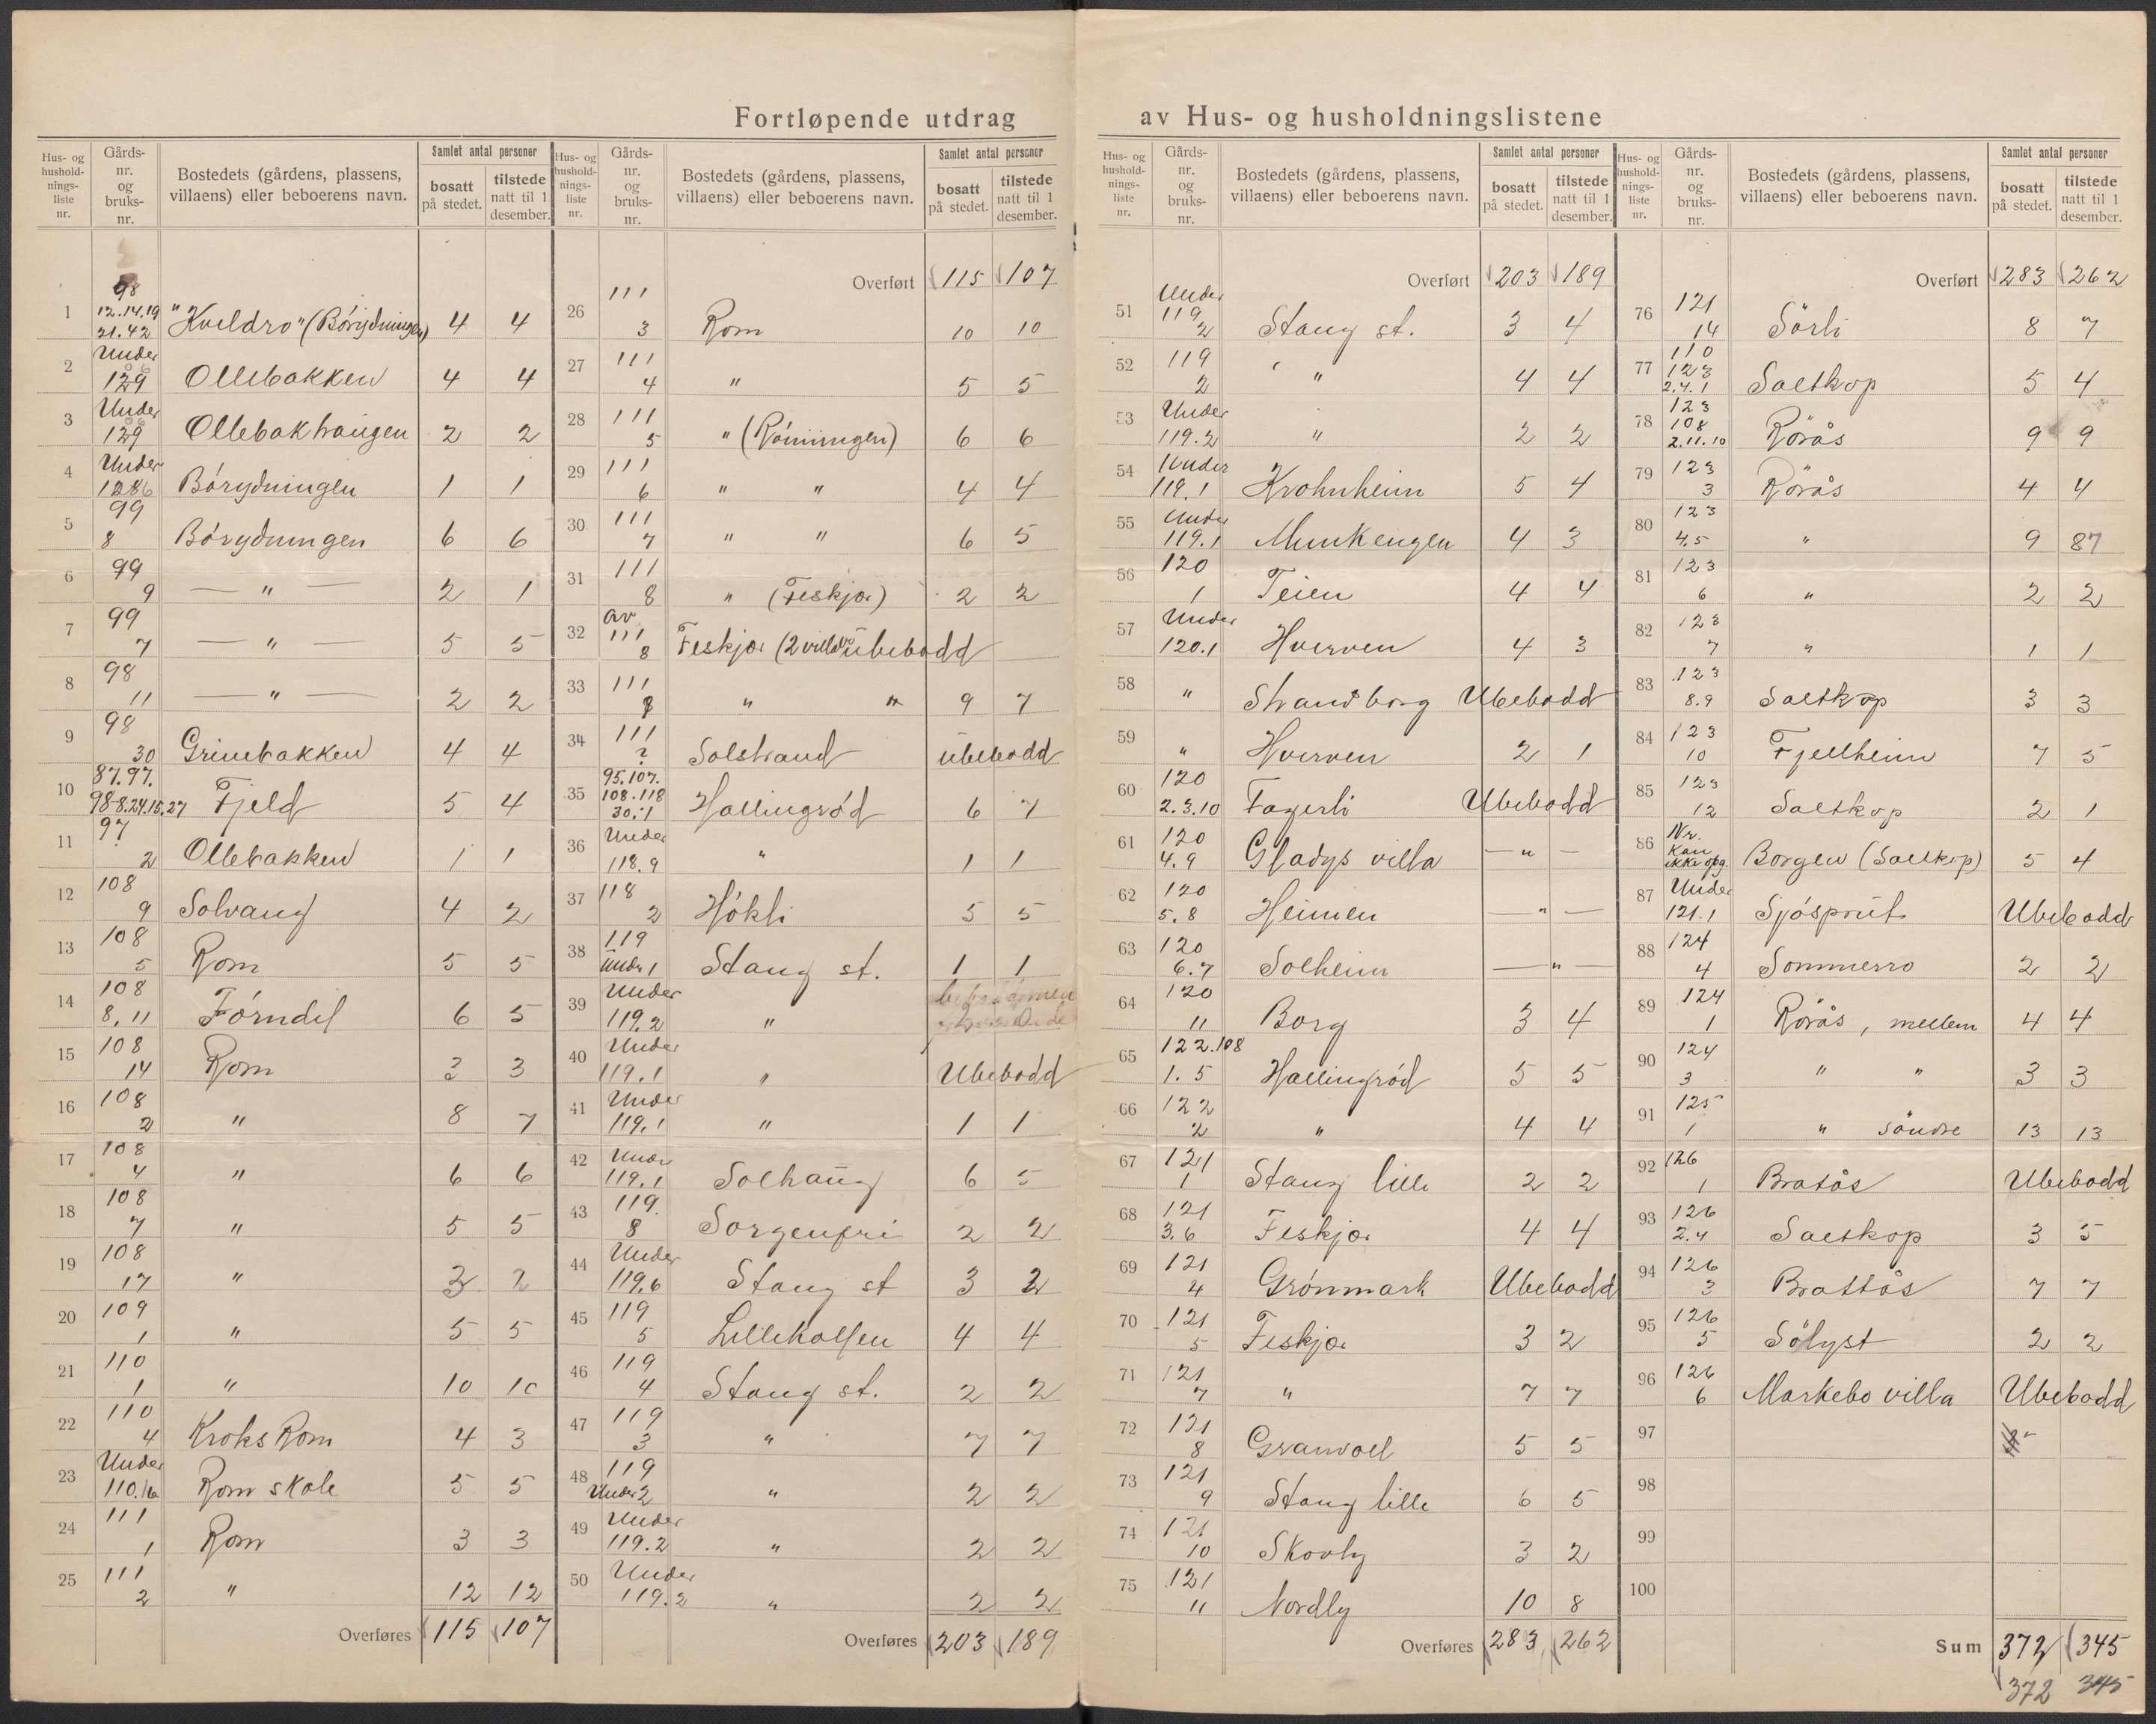 Fortløpende utdrag av Hus- og husholdningslistene
Hus- og hushold-nings-liste nr. | Gårds-nr. og bruks-nr. | Bostedets (gårdens, plassens, villaens) eller beboerens navn. | Samlet antal personer | bosatt på stedet. | tilstede natt til 1 desember.
1 98 12.14.19 21.42 "Kveldro" (Börydningen) 4 4
2 Under 129 Ollebakken 4 4
3 Under 129 Ollebakhaugen 2 2
4 Under 1286 Börydningen 1 1
5 99 8 Börydningen 6 6
6 99 9 — " — 2 1
7 99 7 — " — 5 5
8 98 11 — " — 2 2
9 98 30 Grinebakken 4 4
10 87.97. 98-8.24.15.27 Fjeld 5 4
11 97 2 Ollebakken 1 1
12 108 9 Solvang 4 2
13 108 5 Rom 5 5
14 108 8, 11 Förndel 6 5
15 108 14 Rom 3 3
16 108 2 " 8 7
17 108 4 " 6 6
18 108 7 " 5 5
19 108 17 " 3 2
20 109 1 " 5 5
21 110 1 " 10 10
22 110 4 Kroks Rom 4 3
23 Under 110. Rom skole 5 5
24 111 1 Rom 3 3
25 111 2 " 12 12
Overføres 115 107
Hus- og hushold-nings-liste nr. | Gårds-nr. og bruks-nr. | Bostedets (gårdens, plassens, villaens) eller beboerens navn. | Samlet antal personer | bosatt på stedet. | tilstede natt til 1 desember.
Overført 115 107
26 111 3 Rom 10 10
27 111 4 " 5 5
28 111 5 " (Rönningen) 6 6
29 111 6 " " 4 4
30 111 7 " " 6 5
31 111 8 " (Feskjær) 2 2
32 av 111 8 Feskjær (2 villaer) übebodd
33 111 8 " " 9 7
34 111 ? Solstrand übebodd
35 95.107. 108.118 30.1 Hallingröd 6 7
36 Under 118.9 " 1 1
37 118 2 Hökli 5 5
38 119 Under 1 Stang st. 1 1
39 Under 119.2 "
40 Under 119.1 " Ubebodd
41 Under 119.1 " 1 1
42 Under 119.1 Solhaug 6 5
43 119. 8 Sorgenfri 2 2
44 Under 119.6 Stang st 3 2
45 119 5 Lillekolsen 4 4
46 119 4 Stang st. 2 2
47 119 3 " 7 7
48 119 Under 2 " 2 2
49 Under 119.2 " 2 2
50 Under 119.2 " 2 2
Overføres 203 189
Hus- og hushold-nings-liste nr. | Gårds-nr. og bruks-nr. | Bostedets (gårdens, plassens, villaens) eller beboerens navn. | Samlet antal personer | bosatt på stedet. | tilstede natt til 1 desember.
Overført 203 189
51 Under 119 2 Stang st. 3 4
52 119 2 " 4 4
53 Under 119.2 " 2 2
54 Under 119.1 Krohnheim 5 4
55 Under 119.1 Munkengen 4 3
56 120 1 Teien 4 4
57 Under 120.1 Hverven 4 3
58 " Strandborg Ubebodd
59 " Hverven 2 1
60 120 2.3.10 Fagerli Ubebodd
61 120 4.9 Gladys villa — " —
62 120 5.8 Heimen — " —
63 120 6.7 Solheim — " —
64 120 11 Borg 3 4
65 122.108 1. 5 Hallingröd 5 5
66 122 2 " 4 4
67 121 1 Stang lille 2 2
68 121 3.6 Feskjær 4 4
69 121 4 Grönmark Ubebodd
70 121 5 Feskjær 3 2
71 121 7 " 7 7
72 121 8 Granvoll 5 5
73 121 9 Stang lille 6 5
74 121 10 Skovly 3 2
75 121 11 Nordly 10 8
Overføres 283 262
Hus- og hushold-nings-liste nr. | Gårds-nr. og bruks-nr. | Bostedets (gårdens, plassens, villaens) eller beboerens navn. | Samlet antal personer | bosatt på stedet. | tilstede natt til 1 desember.
Overført 283 262
76 121 14 Sörli 8 7
77 110 123 2.4.1 Saltkop 5 4
78 123 108 2.11.10 Rörås 9 9
79 123 3 Rörås 4 4
80 123 4.5 " 9 87
81 123 6 " 2 2
82 123 7 " 1 1
83 123 8.9 Saltkop 3 3
84 123 10 Fjellheim 7 5
85 123 12 Saltkop 2 1
86 Nr. Kan ikke opg. Borgen (Saltkop) 5 4
87 Under 121.1 Sjösprut Ubebodd
88 124 4 Sommerro 2 2
89 124 1 Rörås, mellem 4 4
90 124 3 " " 3 3
91 125 1 " söndre 13 13
92 126 1 Bratås Ubebodd
93 126 2.4 Saltkop 3 5
94 126 3 Brattås 7 7
95 126 5 Sölyst 2 2
96 126 6 Markebo villa Ubebodd
97
98
99
100
Sum 372 345
372 345